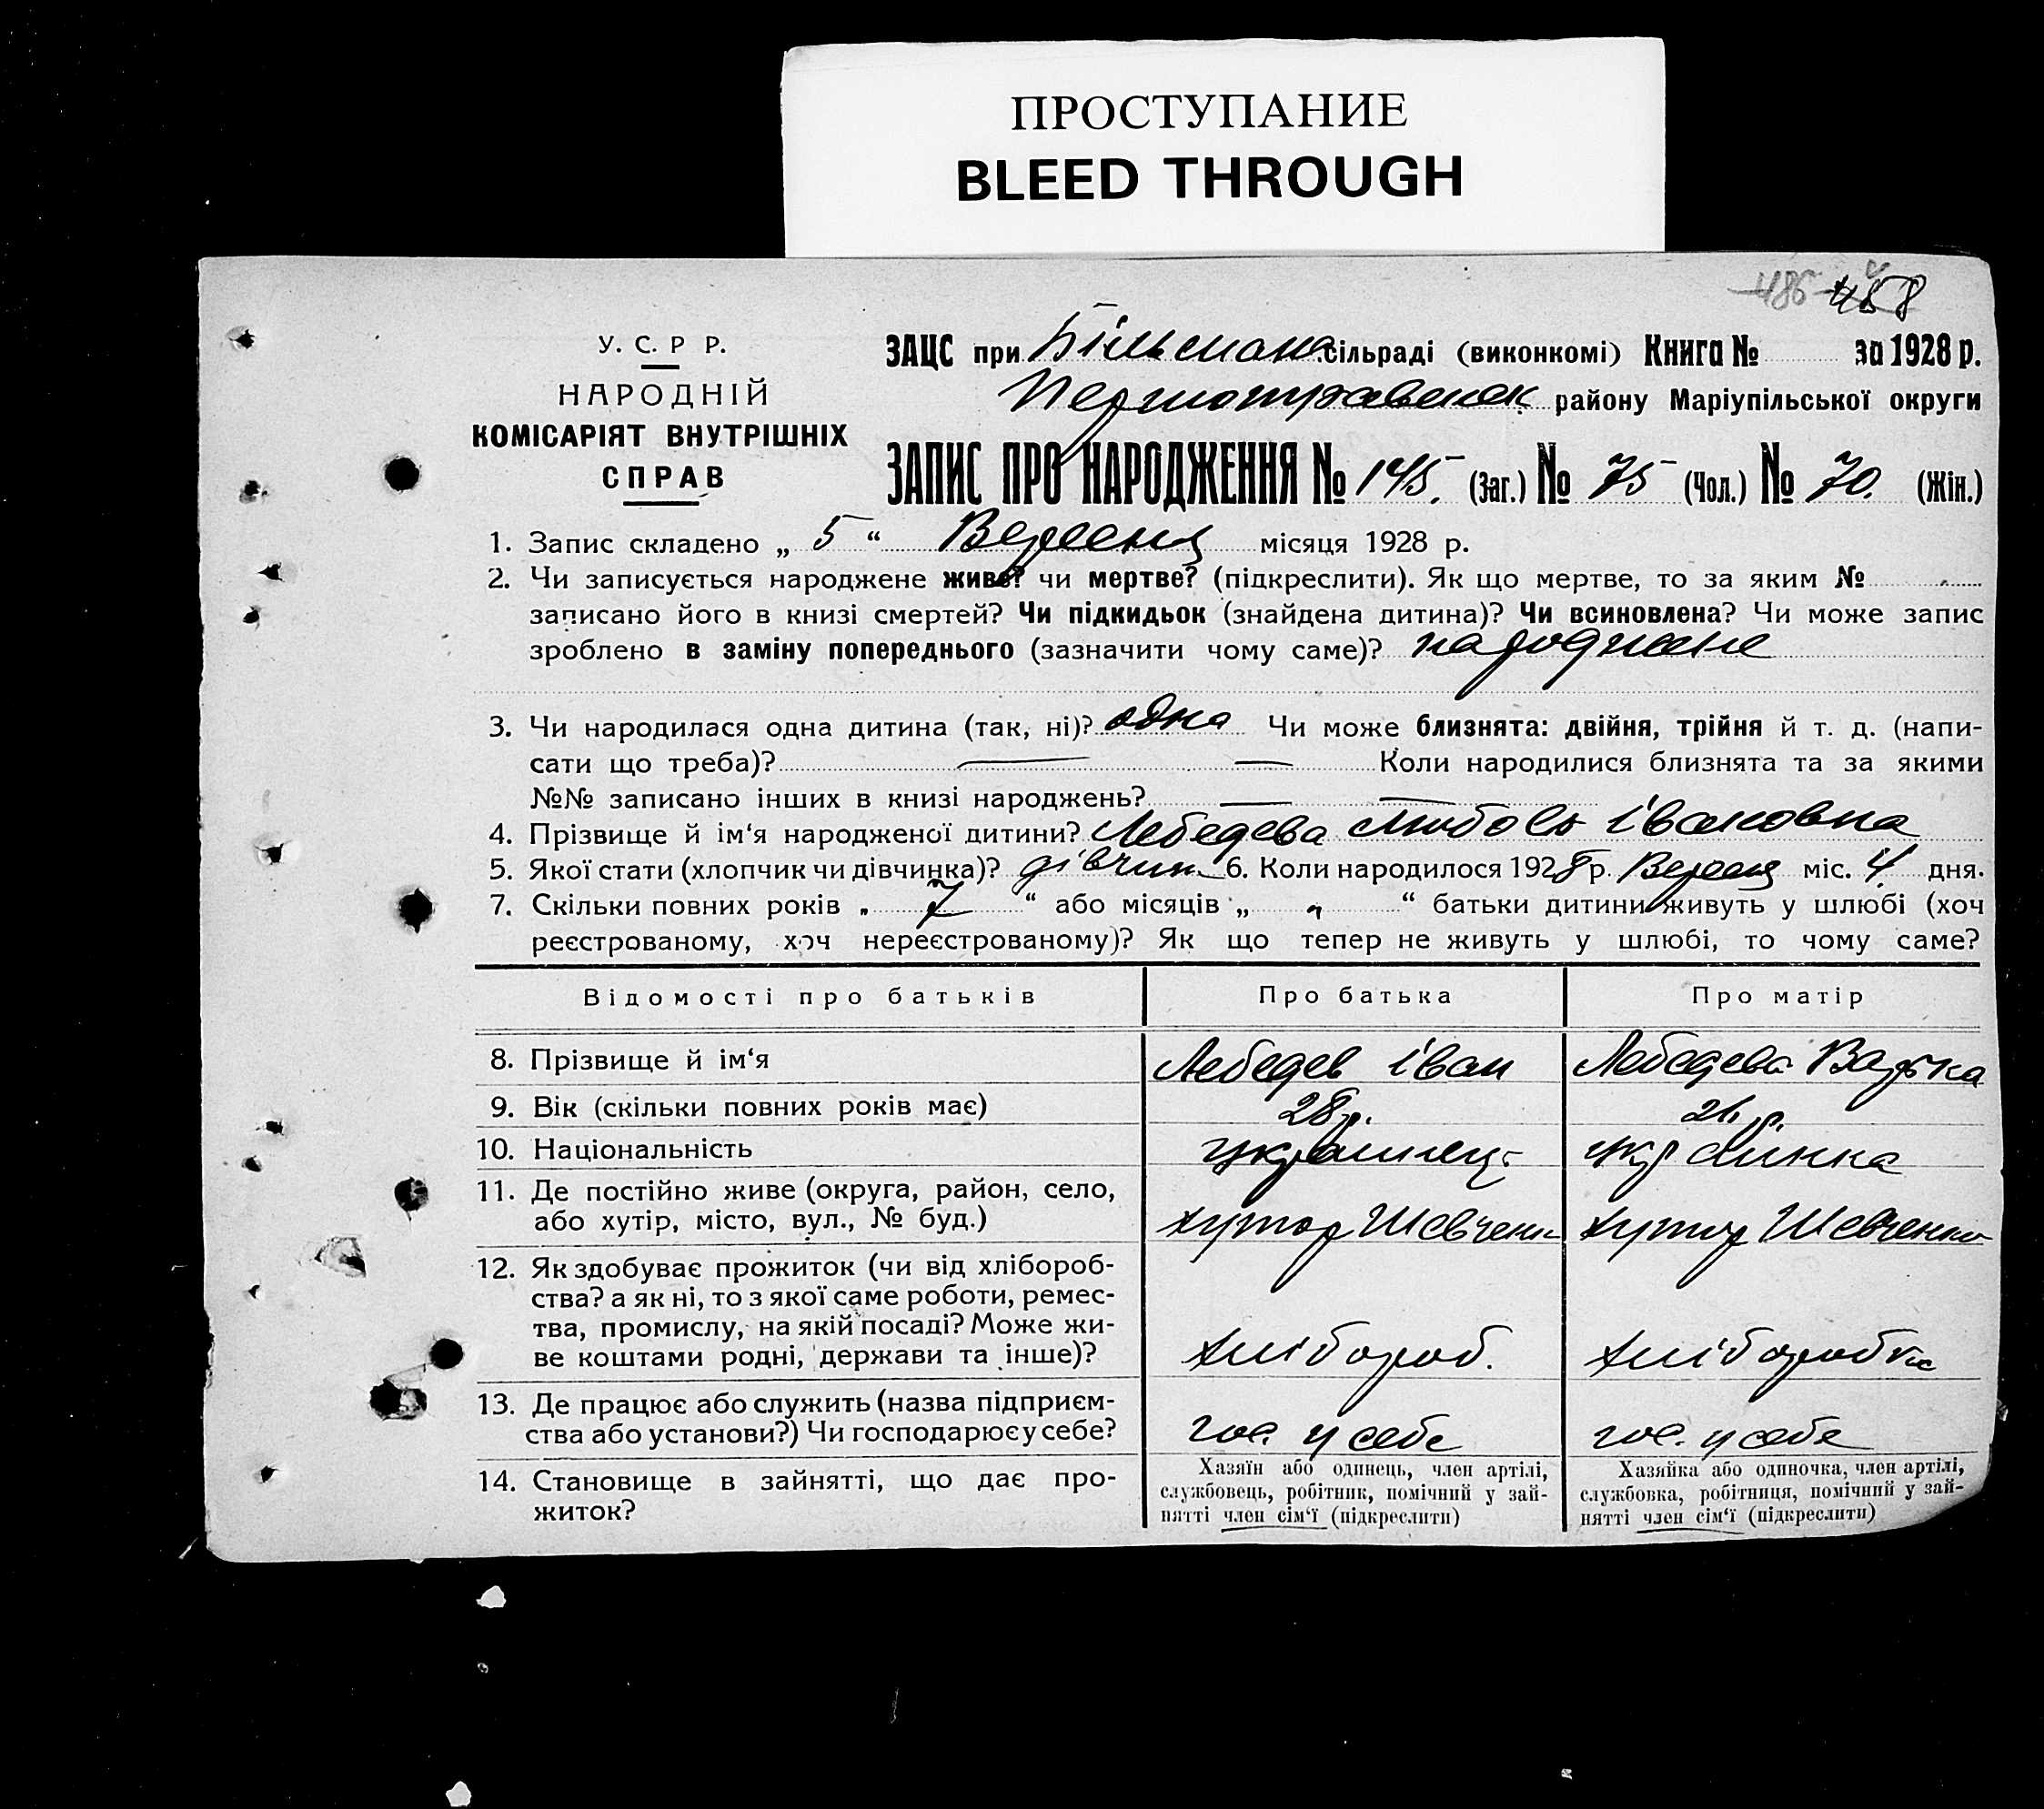 ПРОСТУПАНИЕ
BLEED THROUGH
486 458
У. С. Р Р.
НАРОДНІЙ
КОМІСАРІЯТ ВНУТРІШНІХ
СПРАВ
ЗАЦС при Більман. сільраді (виконкомі) Книга № за 1928 р.
Першотравенск району Маріупільської округи
ЗАПИС ПРО НАРОДЖЕННЯ № 145. (Заг.) № 75 (Чол.) № 70. (Жін.)
1. Запис складено „ 5 “ Вересня місяця 1928 р.
2. Чи записується народжене живе? чи мертве? (підкреслити). Як що мертве, то за яким №
записано його в книзі смертей? Чи підкидьок (знайдена дитина)? Чи всиновлена? Чи може запис
зроблено в заміну попереднього (зазначити чому саме)? народжене
3. Чи народилася одна дитина (так, ні)? одна Чи може близнята: двійня, трійня й т. д. (напи-
сати що треба)? — — Коли народилися близнята та за якими
№№ записано інших в книзі народжень? — —
4. Прізвище й ім‘я народженої дитини? Лебедева Любовь Івановна
5. Якої стати (хлопчик чи дівчинка)? дівчин. 6. Коли народилося 1928 р. Вересня міс. 4 дня.
7. Скільки повних років „ 7 “ або місяців „ „ “ батьки дитини живуть у шлюбі (хоч
реєстрованому, хоч нереєстрованому)? Як що тепер не живуть у шлюбі, то чому саме?
Відомості про батьків Про батька Про матір
8. Прізвище й ім‘я Лебедев Іван Лебедева
9. Вік (скільки повних років має) 28 р. 26 р.
10. Національність українець українка
11. Де постійно живе (округа, район, село,
або хутір, місто, вул., № буд.) хутор Шевченк хутор Шевченко
12. Як здобуває прожиток (чи від хлібороб-
ства? а як ні, то з якої саме роботи, ремес-
тва, промислу, на якій посаді? Може жи-
ве коштами родні, держави та інше)? хлібороб. хліборобка
13. Де працює або служить (назва підприєм-
ства або установи?) Чи господарює у себе? гос. у себе гос. у себе
14. Становище в зайнятті, що дає про-
житок?
Хазяїн або одинець, член артілі,
службовець, робітник, помічний у зай-
нятті член сім‘ї (підкреслити)
Хазяйка або одиночка, член артілі,
службовка, робітниця, помічний у зай-
нятті член сім‘ї (підкреслити)